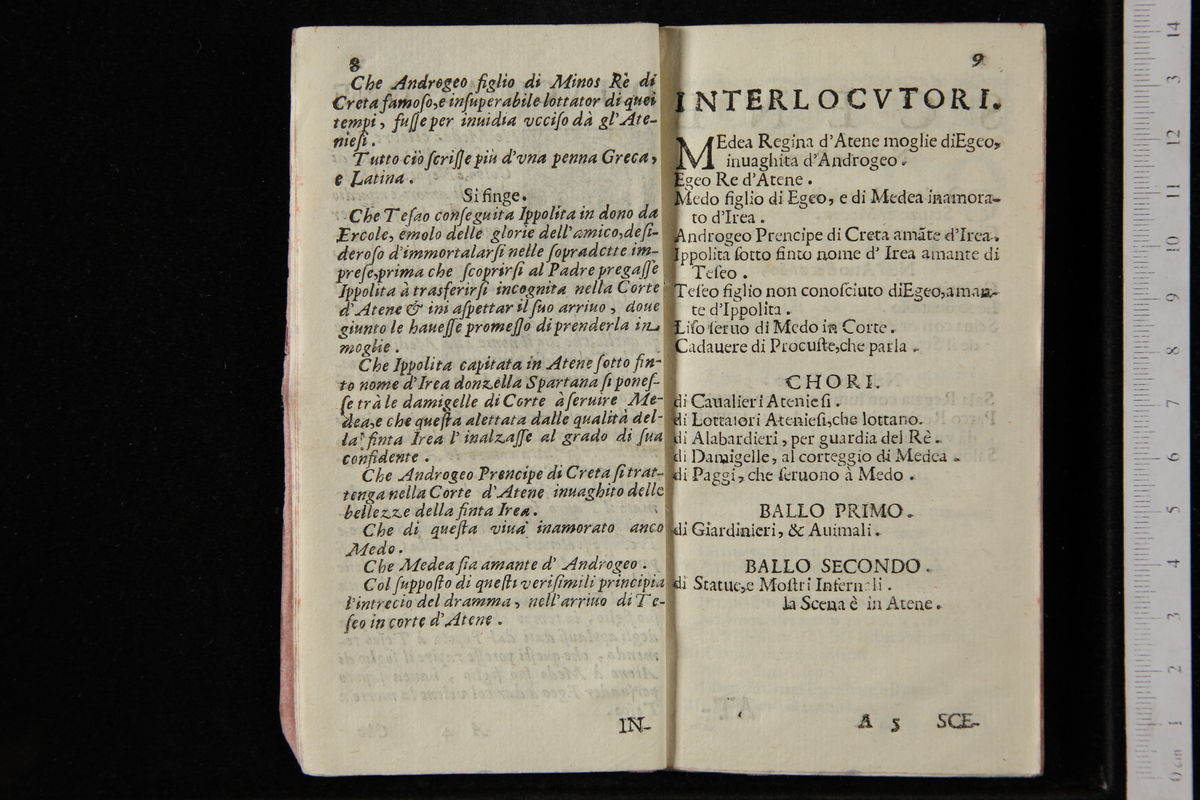 8
Che Androgeo figlio di Minos Rè di
Creta famoſo,e inſuperabile lottator di quei
tempi, fuſſe per inuidia vcciſo dà gl'Ate-
nieſi.
Tutto ciò ſcriſſe più d'vna penna Greca,
e Latina.
Si finge.
Che Teſao conſeguita Ippolita in dono da
Ercole, emolo delle glorie dell'amico,deſi-
deroſo d'immortalarſi nelle ſopradette im-
preſe,prima che ſcoprirſi al Padre pregaſſe
Ippolita à trasferirſi incognita nella Corte
d'Atene & ini aſpettar il ſuo arriuo, doue
giunto le haueſſe promeſſo di prenderla in
moglie.
Che Ippolita capitata in Atene ſotto fin-
to nome d'Irea donzella Spartana ſi poneſ-
ſe trà le damigelle di Corte à ſeruire Me-
dea,e che queſta alettata dalle qualità del-
la finta Irea l'inalzaſſe al grado di ſua
confidente.
Che Androgeo Prencipe di Creta ſi trat-
tenga nella Corte d'Atene inuaghito delle
bellezze della finta Irea.
Che di queſta viua inamorato anco
Medo.
Che Medea ſia amante d' Androgeo.
Col ſuppoſto di queſti veriſimili principia
l'intrecio del dramma, nell'arriuo di Te-
ſeo in corte d'Atene.
IN-
9
INTERLOCVTORI.
MEdea Regina d'Atene moglie diEgeo,
inuaghita d'Androgeo.
Egeo Re d'Atene.
Medo figlio di Egeo, e di Medea inamora-
to d'Irea.
Androgeo Prencipe di Creta amãte d'Irea.
Ippolita ſotto finto nome d' Irea amante di
Teſeo.
Teſeo figlio non conoſciuto diEgeo,aman-
te d'Ippolita.
Liſo ſeruo di Medo in Corte.
Cadauere di Procuſte,che parla.
CHORI.
di Caualieri Atenieſi.
di Lottatori Atenieſi,che lottano.
di Alabardieri, per guardia del Rè.
di Damigelle, al corteggio di Medea.
di Paggi, che ſeruono à Medo.
BALLO PRIMO.
di Giardinieri, & Auimali.
BALLO SECONDO.
di Statue,e Moſtri Infernali.
la Scena è in Atene.
A 5 SCE-